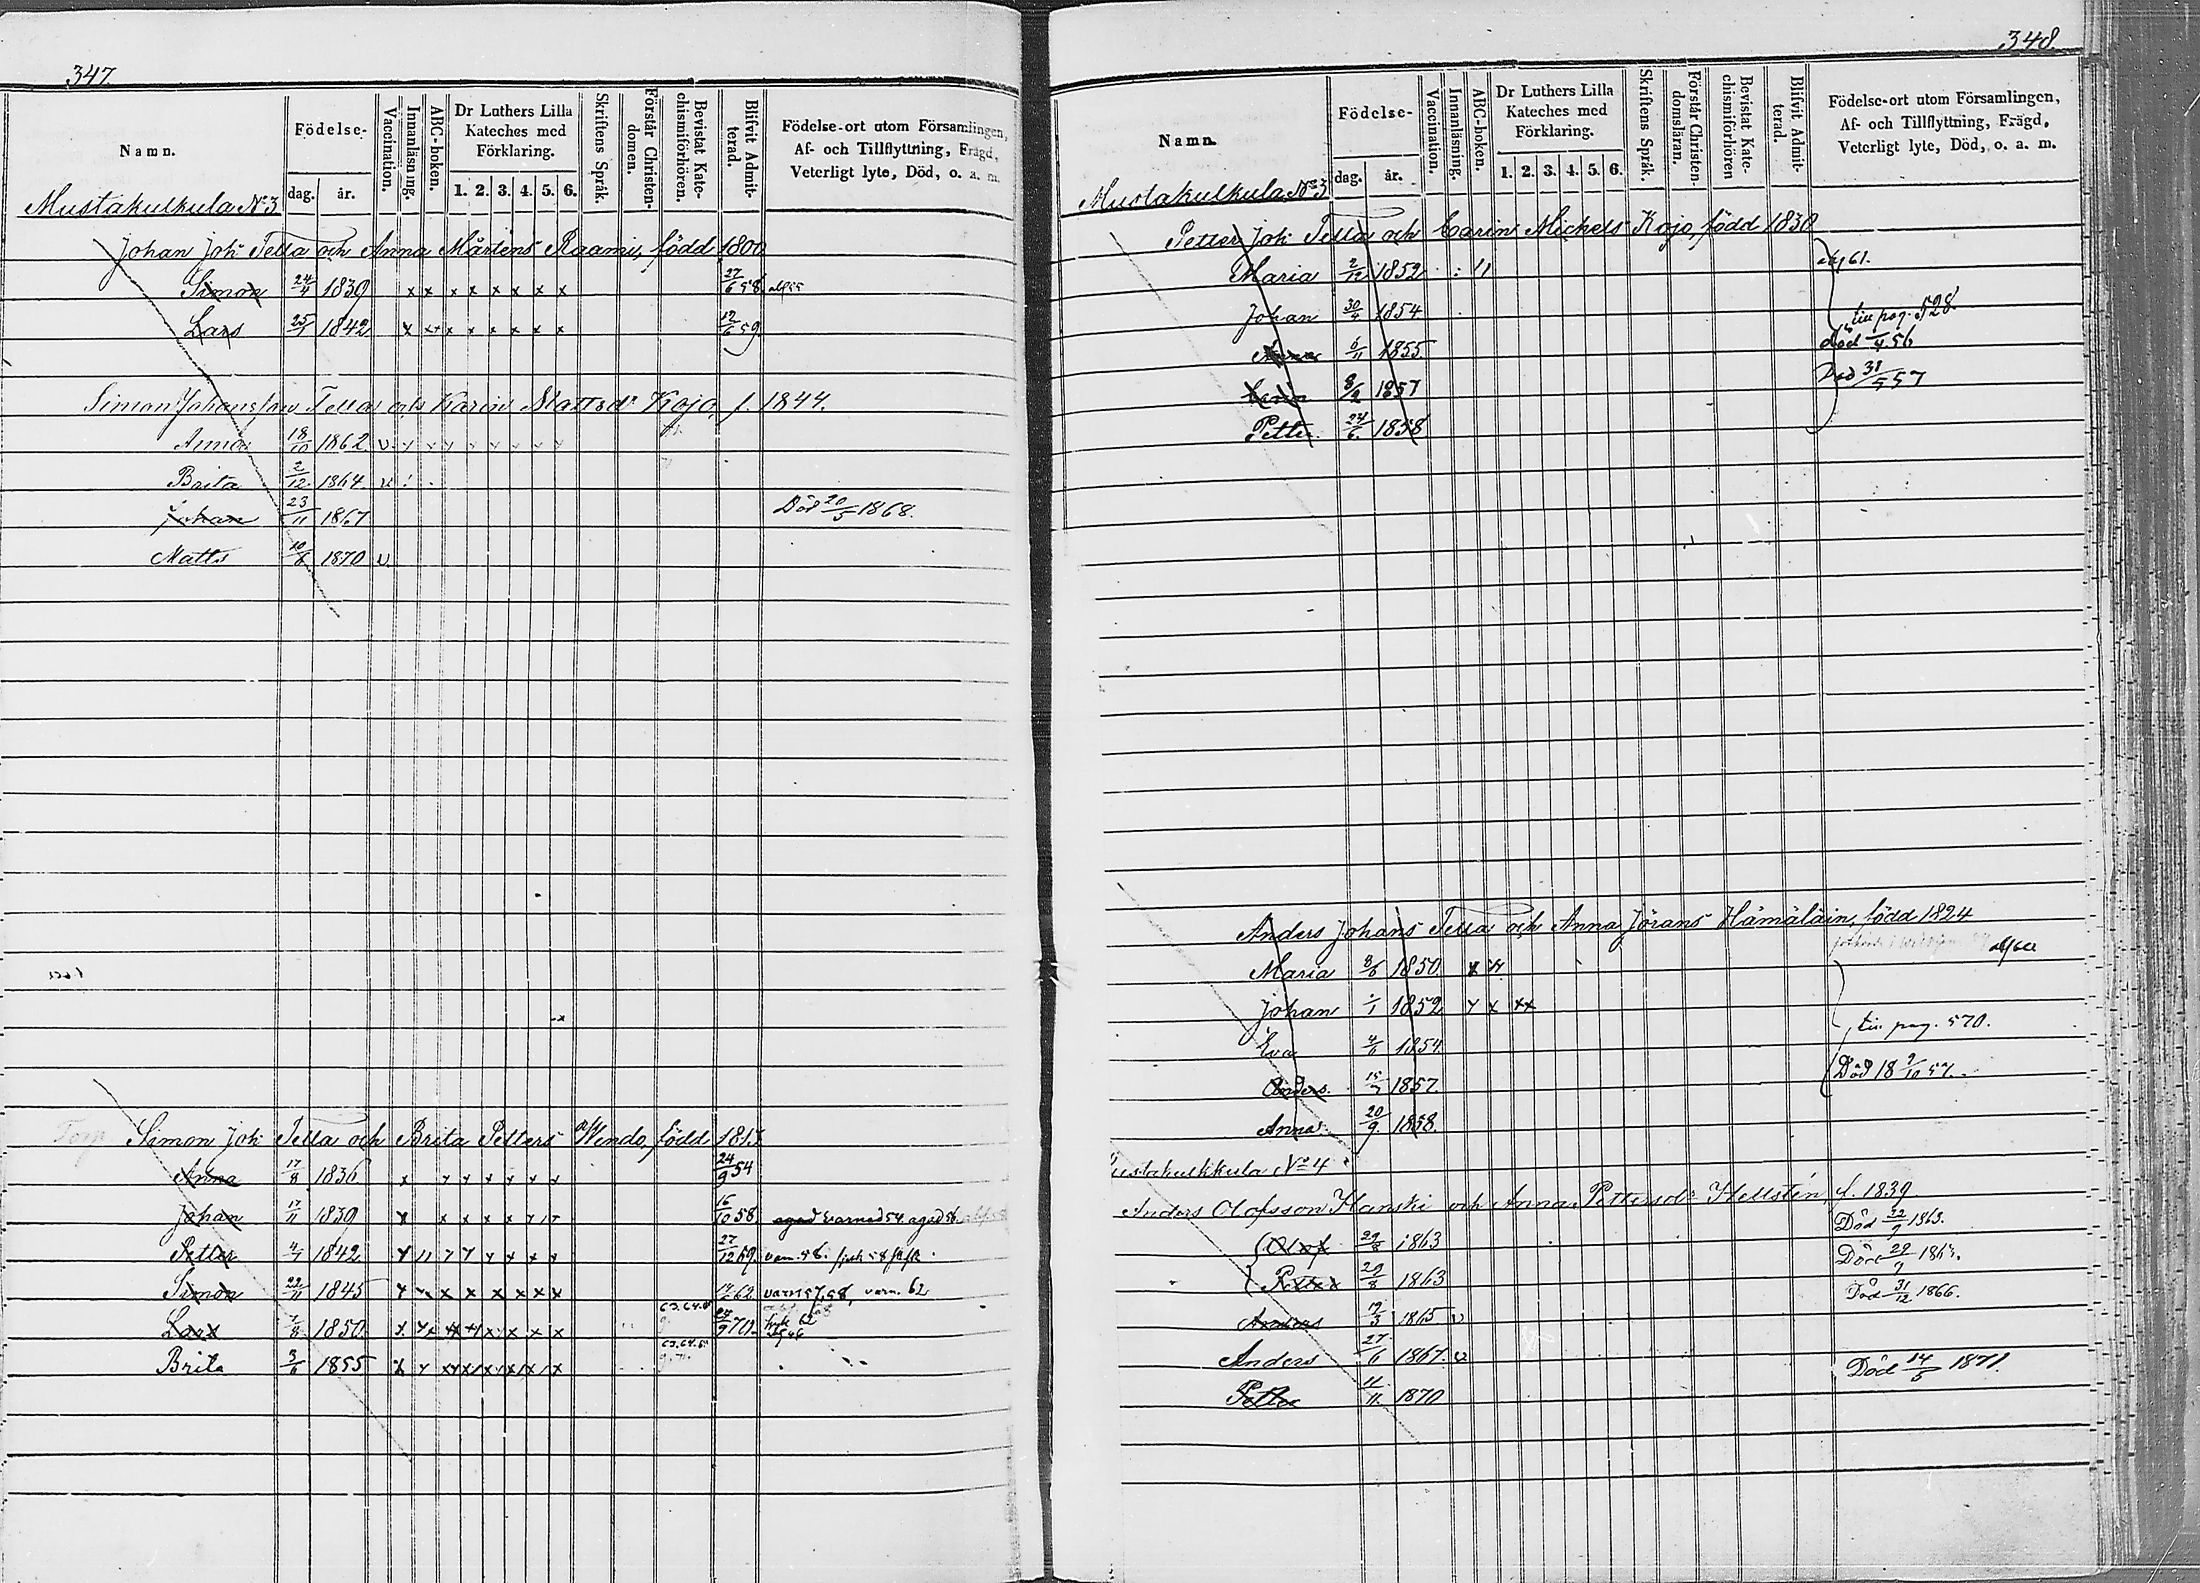 347.
Namn.
Födelse-
dag. år.
Vaccination.
Innanläsning.
ABC-boken.
Dr Luthers Lilla
Kateches med
Förklaring.
1. 2. 3. 4. 5. 6.
Skriftens Språk.
Förstår Christen-
domen.
Bevistat Kate-
chismiförhören.
Blifvit Admit-
terad.
Födelse-ort utom Församlingen,
Af- och Tillflyttning, Frägd,
Veterligt lyte, Död, o. a. m.
Mustakulkula No 3
Johan Joh Tella och Anna Mårtens Raami, född 1800
Simon 24/4 1839 x x x x x x x x 27/6 58.
Lars 25/ 1842 x x x x x x x 12/6 59.
Simon Johansson Tella och Karin Mattsdr Kojo f. 1844.
Anna 18/10 1862 v
Brita 2/12 1864 v
Johan 23/11 1867 Död 20/5 1868.
Matts 10/8 1870 v.
Torp Simon Joh Tella och Brita Petters Wendo, född 1813
Anna 17/8 1836 x 24/9 54
Johan 17/11 1839 16/10 58 varnad 54. agad 56
Petter 4/ 1842 27/12 69. varn. 56.
Simon 22/11 1845 62 varn 57, 58, varn. 62
Lars 7/8 1850
Brita 3/6 1855
348.
Namn.
Födelse-
dag. år.
Vaccination.
Innanläsning.
ABC-boken.
Dr Luthers Lilla
Kateches med
Förklaring.
1. 2. 3. 4. 5. 6.
Skriftens Språk.
Förstår Christen-
domsläran.
Bevistat Kate-
chismiförhören
Blifvit Admit-
terad.
Födelse-ort utom Församlingen,
Af- och Tillflyttning, Frägd,
Veterligt lyte, Död, o. a. m.
Mustakulkula No 3
Petter Joh Tella och Carin Michels Kojo, född 1830
Maria 2/12 1852 61.
Johan 30/ 1854 till pag. 528.
Anna 6/11 1855 död /4 56
Carin 8/2 1857 Död 31/5 57
Petter 24/6 1858
Anders Johans Tella och Anna Jörans Hämäläin, född 1824
Maria 8/6 1850
Johan /1 1852
Eva 4/6 1854 till pag. 570.
Anders 15/7 1857. Död 18 9/10 57.
Anna 20/9 1858.
ustakulkkula No 4
Anders Olofsson Hanski och Anna Pettersdr Hellstén, f. 1839
Olof 29/8 1863 Död 22/9 1863.
Petter 29/8 1863 Död 29/9 1863.
Anders 17/3 1865 v Död 31/12 1866.
Anders 27/6 1867. v
Petter 11/11. 1870 Död 14/5 1871.